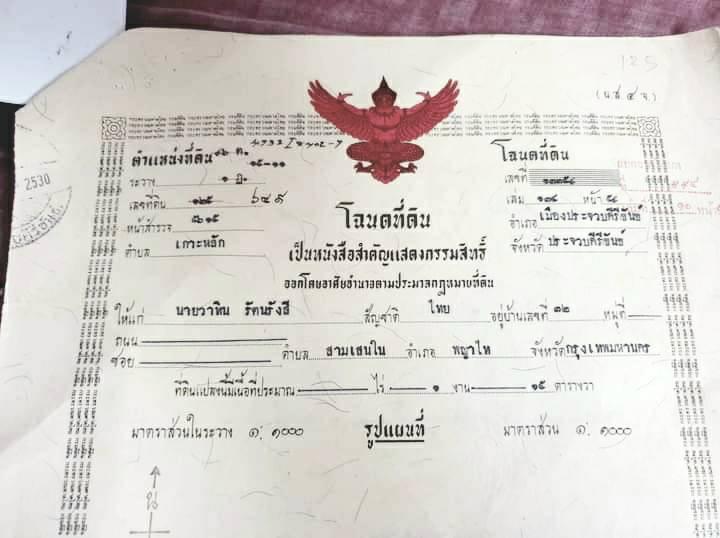 125
(น.ส.๔ จ.)
ตำแหน่งที่ดิน
4933 I
๑๕-๑๑
ระวาง ๑ ป.
เลขที่ดิน ๑๒๕ ๖๔๙
หน้าสำรวจ ๕๖๑๕
ตำบล เกาะหลัก
โฉนดที่ดิน
เลขที่ ๑๓๓๕๔
เล่ม ๑๓๔ หน้า ๕๔
อำเภอ เมืองประจวบคีรีขันธ์
จังหวัด ประจวบคีรีขันธ์
2530
โฉนดที่ดิน
เป็นหนังสือสำคัญแสดงกรรมสิทธิ์
ออกโดยอาศัยอำนาจตามประมวลกฎหมายที่ดิน
ให้แก่ นายวาทิน รัตนรังสี สัญชาติ ไทย อยู่บ้านเลขที่ ๓๒ หมู่ที่
ถนน
ซอย ตำบล สามเสนใน อำเภอ พญาไท จังหวัด กรุงเทพมหานคร
ที่ดินแปลงนี้มีเนื้อที่ประมาณ ไร่ ๑ งาน ๑๕ ตารางวา
มาตราส่วนในระวาง ๑: ๑๐๐๐ รูปแผนที่ มาตราส่วน ๑: ๑๐๐๐
น